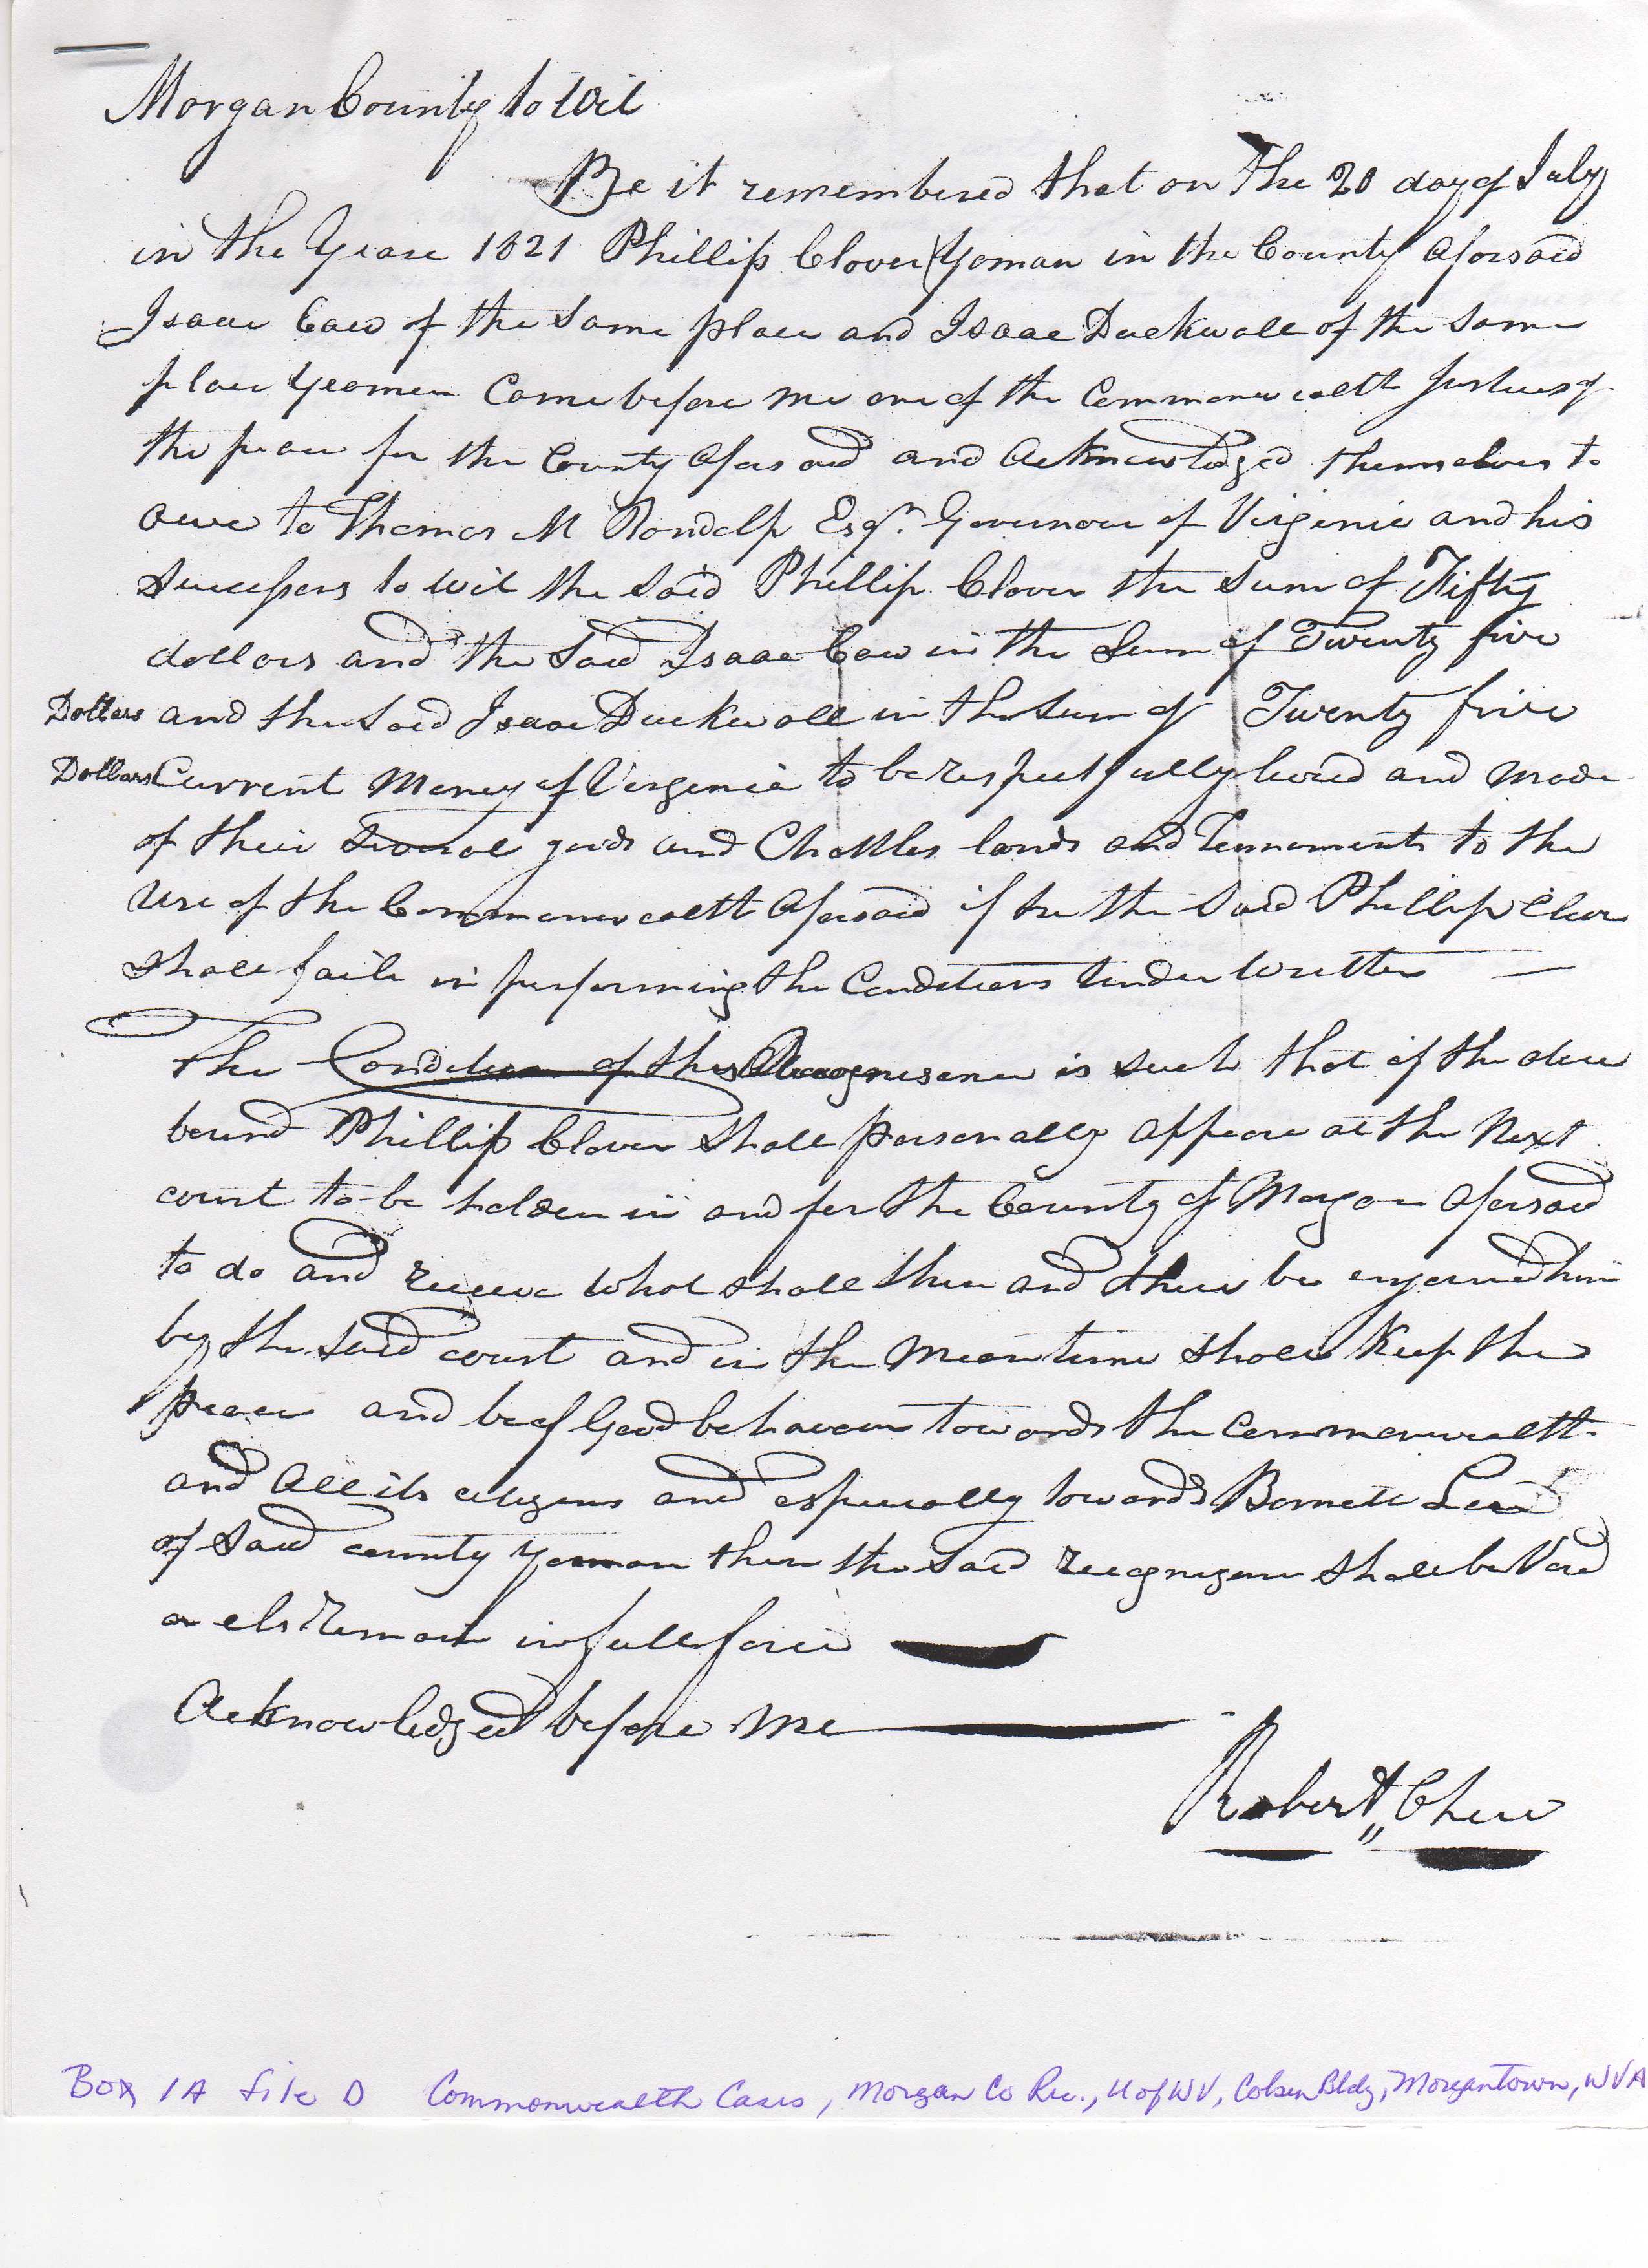 Morgan County to Wit
Be it remembered that on the 20 day of July
in the Yeare 1821 Phillip Clover Yoman in the County Aforsaid
Isaac Caw of the Same place and Isaac Duckwall of the Same
place Yeomen Came before me one of the Commonwealth Justices of
the peace for the County Aforsaid and Acknowledged themselves to
owe to Thomas M Randolp Esqr. Governour of Virginia and his
Successors to wit the Said Phillip Clover the Sum of Fifty
dollars and the Said Isaac Caw in the Sum of Twenty five
Dollars and the Said Isaac Duckwall in the Sum of Twenty five
Dollars Current Money of Virginia to be respectfully levied and made
of their Several goods and Chattles lands and Tennements to the
Use of the Commonwealth Aforsaid if he the Said Phillip Clover
Shall faile in performing the Conditions Under Written
The Condition of this Recognisance is such that if the above
bound Phillip Clover Shall personally appeare at the Next
court to be holden in and for the County of Morgan Aforsaid
to do and receive what shall then and there be enjoined him
by the said court and in the Mean time shall Keep the
peace and be of Good behaveour towards the Commonwealth
and All its citizens and especially towards Barnett
of Said county Yeoman then the Said recognizance shall be Void
or els Remain in full force
Acknowledged before Me
Robert Chew
Box 1A file D Commonwealth Cases, Morgan Co Rec., U of WV, Colson Bldg, Morgantown, WVA